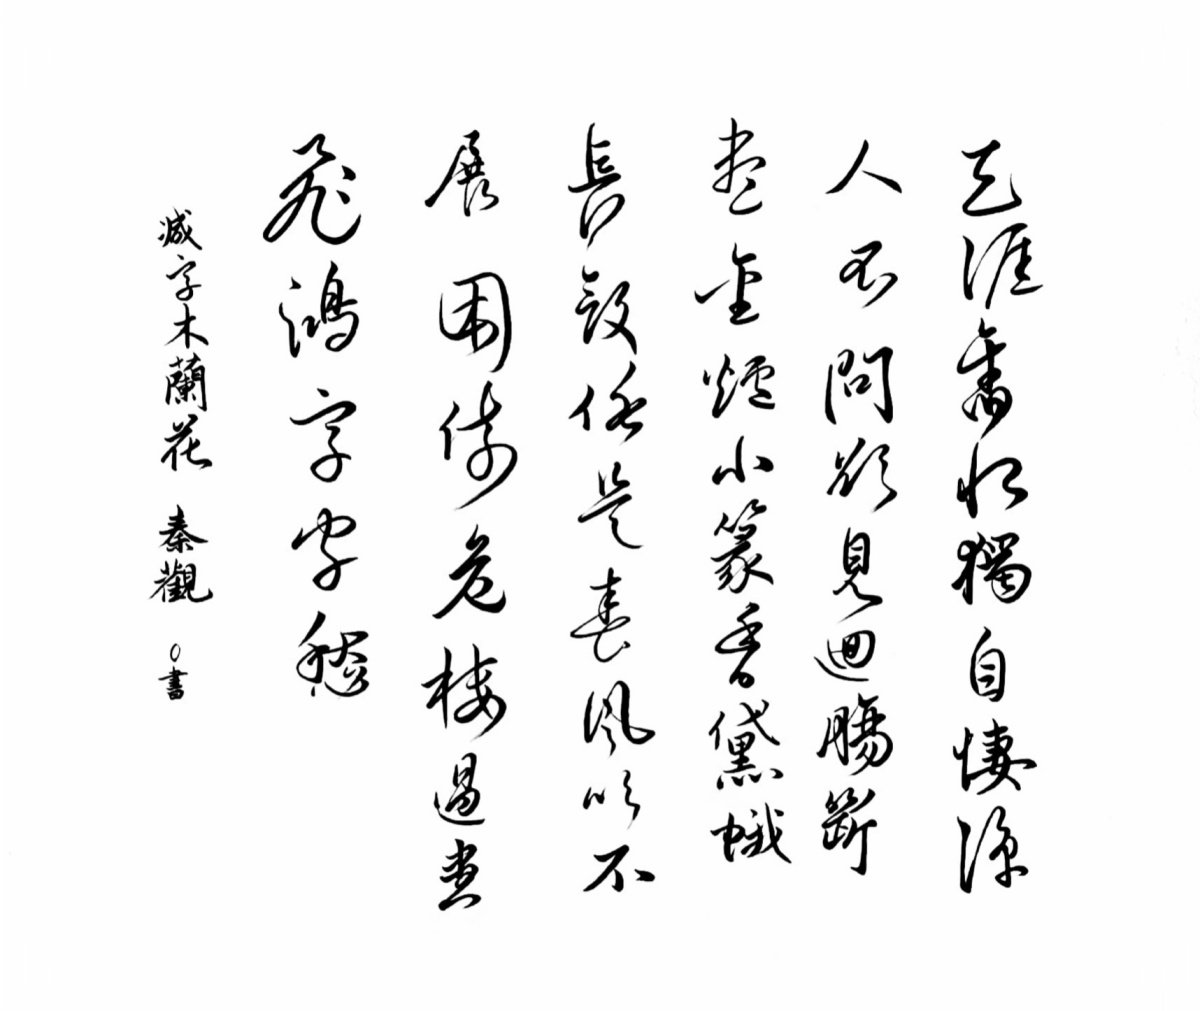 天涯舊恨獨自悽涼
人不問欲見迴腸斷
盡金爐小篆香黛蛾
長斂任是春風吹不
展困倚危樓過盡
飛鴻字字愁
減字木蘭花 秦觀 〇書